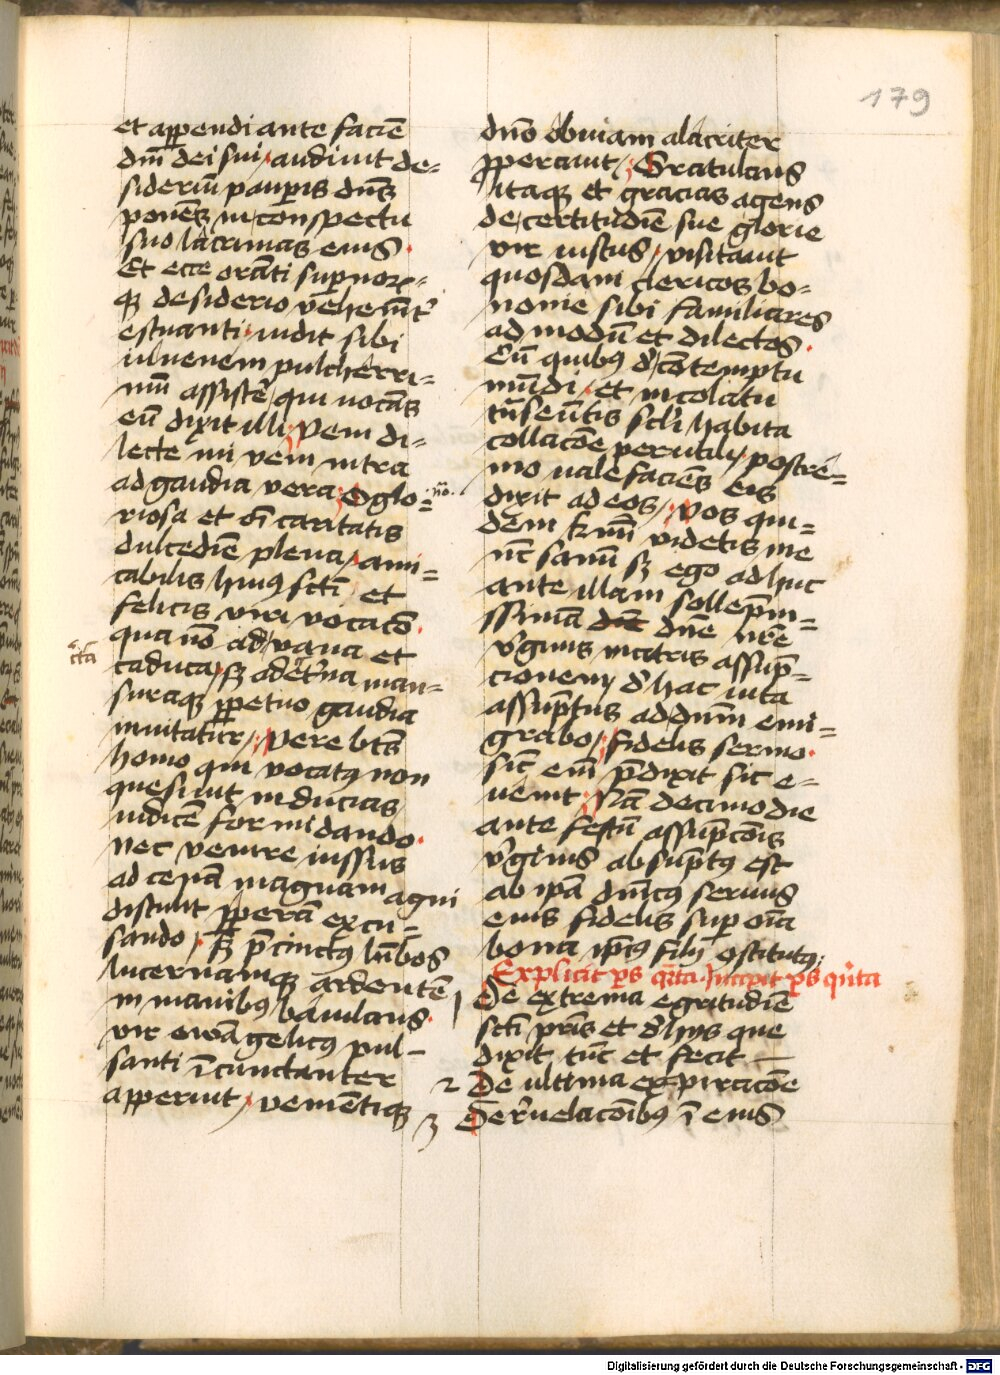 179
et appendi ante facie͞
dn͞i dei sui / audiuit de=
sideriu͞ paup͞is dn͞s
ponens in conspectu
suo lacrimas eius ·
Et ecce oranti sup͞nor͞=
q͞ desiderio vehem͞t͞
estuanti / uidit sibi
iuluenem pulcherri=
mu͞ assiste͞ / qui uocans
eu͞ dixit illi / Veni di=
lecte mi veni intra
ad gaudia vera / O glo=
riosa et o͞i caritatis
dulcedi͞e plena / ami=
cabilis huiꝰ sc͞ti / et
felicis viri vocat͞o ·
qua no͞ ad vana et
caduca / sꝫ ad et͞na man=
suraqꝫ ꝑpetuo gaudia
inuitatur / Vere bt͞s
homo qui vocatꝰ non
quesiuit inducias
iudice͞ formidando ·
nec venire iussus
ad cena͞ magnam agni
distulit ꝑpera͞ excu=
sando / Sꝫ p͞cinctꝰ lu͞bos
lucernamqꝫ ardente͞
in manibꝰ baiulans ·
vir ewa͞gelicꝰ pul-
santi i͞cunctanter
apperuit / venie͞tiqꝫ
dn͞o obuiam alacriter
ꝓperauit / Gratulans
itaqꝫ et gracias agens
de certitudi͞e sue glorie
vir iustus / visitauit
quosdam clericos bo-
nonie sibi familiares
ad modu͞ et dilectos ·
Cu͞ quibꝰ d͞ co͞temptu
mu͞di / et incolatu
tn͞seu͞tis sc͞li habita
collac͞oe perutili / postre͞=
mo uale facie͞s eis
dixit ad eos / Vos qui=
dem k͞mi videtis me
nc͞ sanu͞ sꝫ ego adhuc
ante illam solle͞pni=
ssima͞ dn͞e nr͞e
v͞ginis matris assu͞p-
cionem / d͞ hac uita
assu͞ptus ad dn͞m emi=
grabo / fidelis sermo ·
sic͞ em͞ p͞dixit sic e-
uenit / Na͞ decimo die
ante festu͞ assu͞pc͞ois
v͞ginis absu͞ptꝰ est
ab ip͞a dn͞icꝰ seruus
eius fidelis sup o͞ia
bona ip͞iꝰ filij ꝯstitutꝰ
Explicit p͞s q͞rta. Incipit p͞s qui͞ta
1 De extrema egritudi͞e
sc͞ti pr͞is et d͞ hijs que
dixit tu͞c et fecit —
2 De ultima expirac͞oe
3 De re͞uelac͞oibꝰ i͞ eius
Digitalisierung gefördert durch die Deutsche Forschungsgemeinschaft - DFG